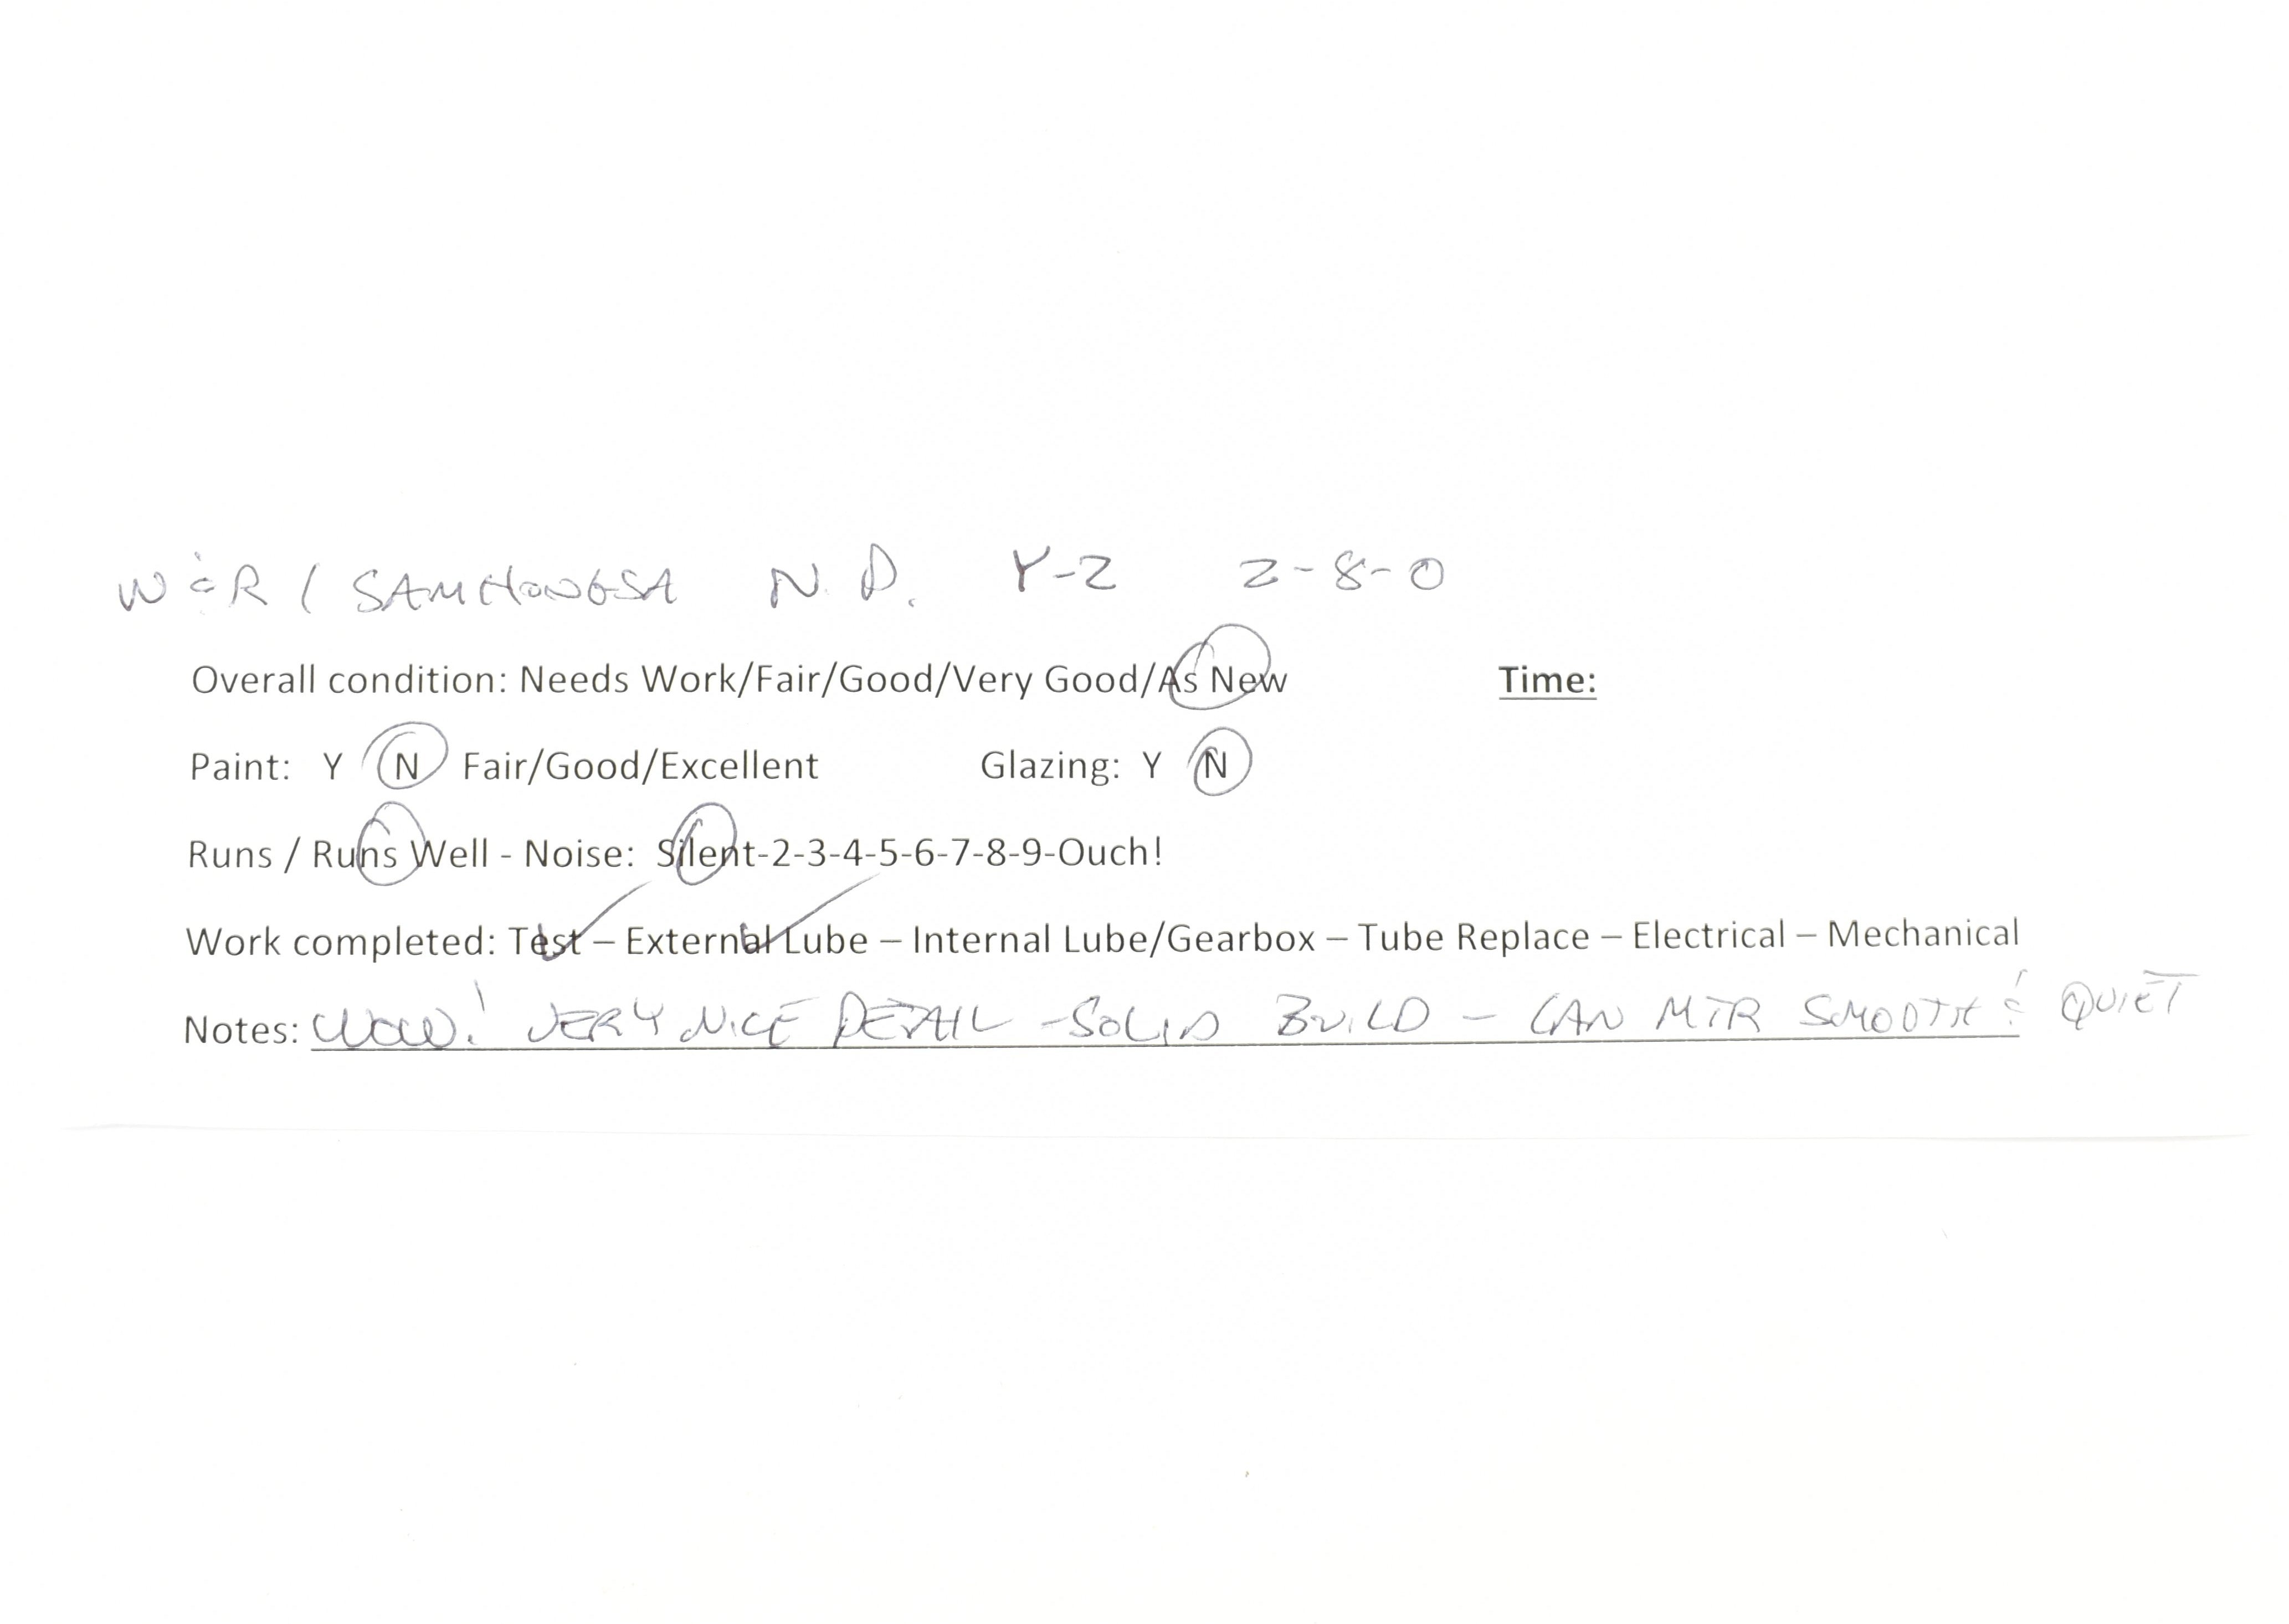 W & R / SAMHONGSA N. P. Y-2 2-8-0
Overall condition: Needs Work/Fair/Good/Very Good/As New Time:
Paint: Y N Fair/Good/Excellent Glazing: Y N
Runs / Runs Well - Noise: Silent-2-3-4-5-6-7-8-9-Ouch!
Work completed: Test – External Lube – Internal Lube/Gearbox – Tube Replace – Electrical – Mechanical
Notes: WOW! VERY NICE DETAIL - SOLID BUILD - CAN MTR SMOOTH & QUIET